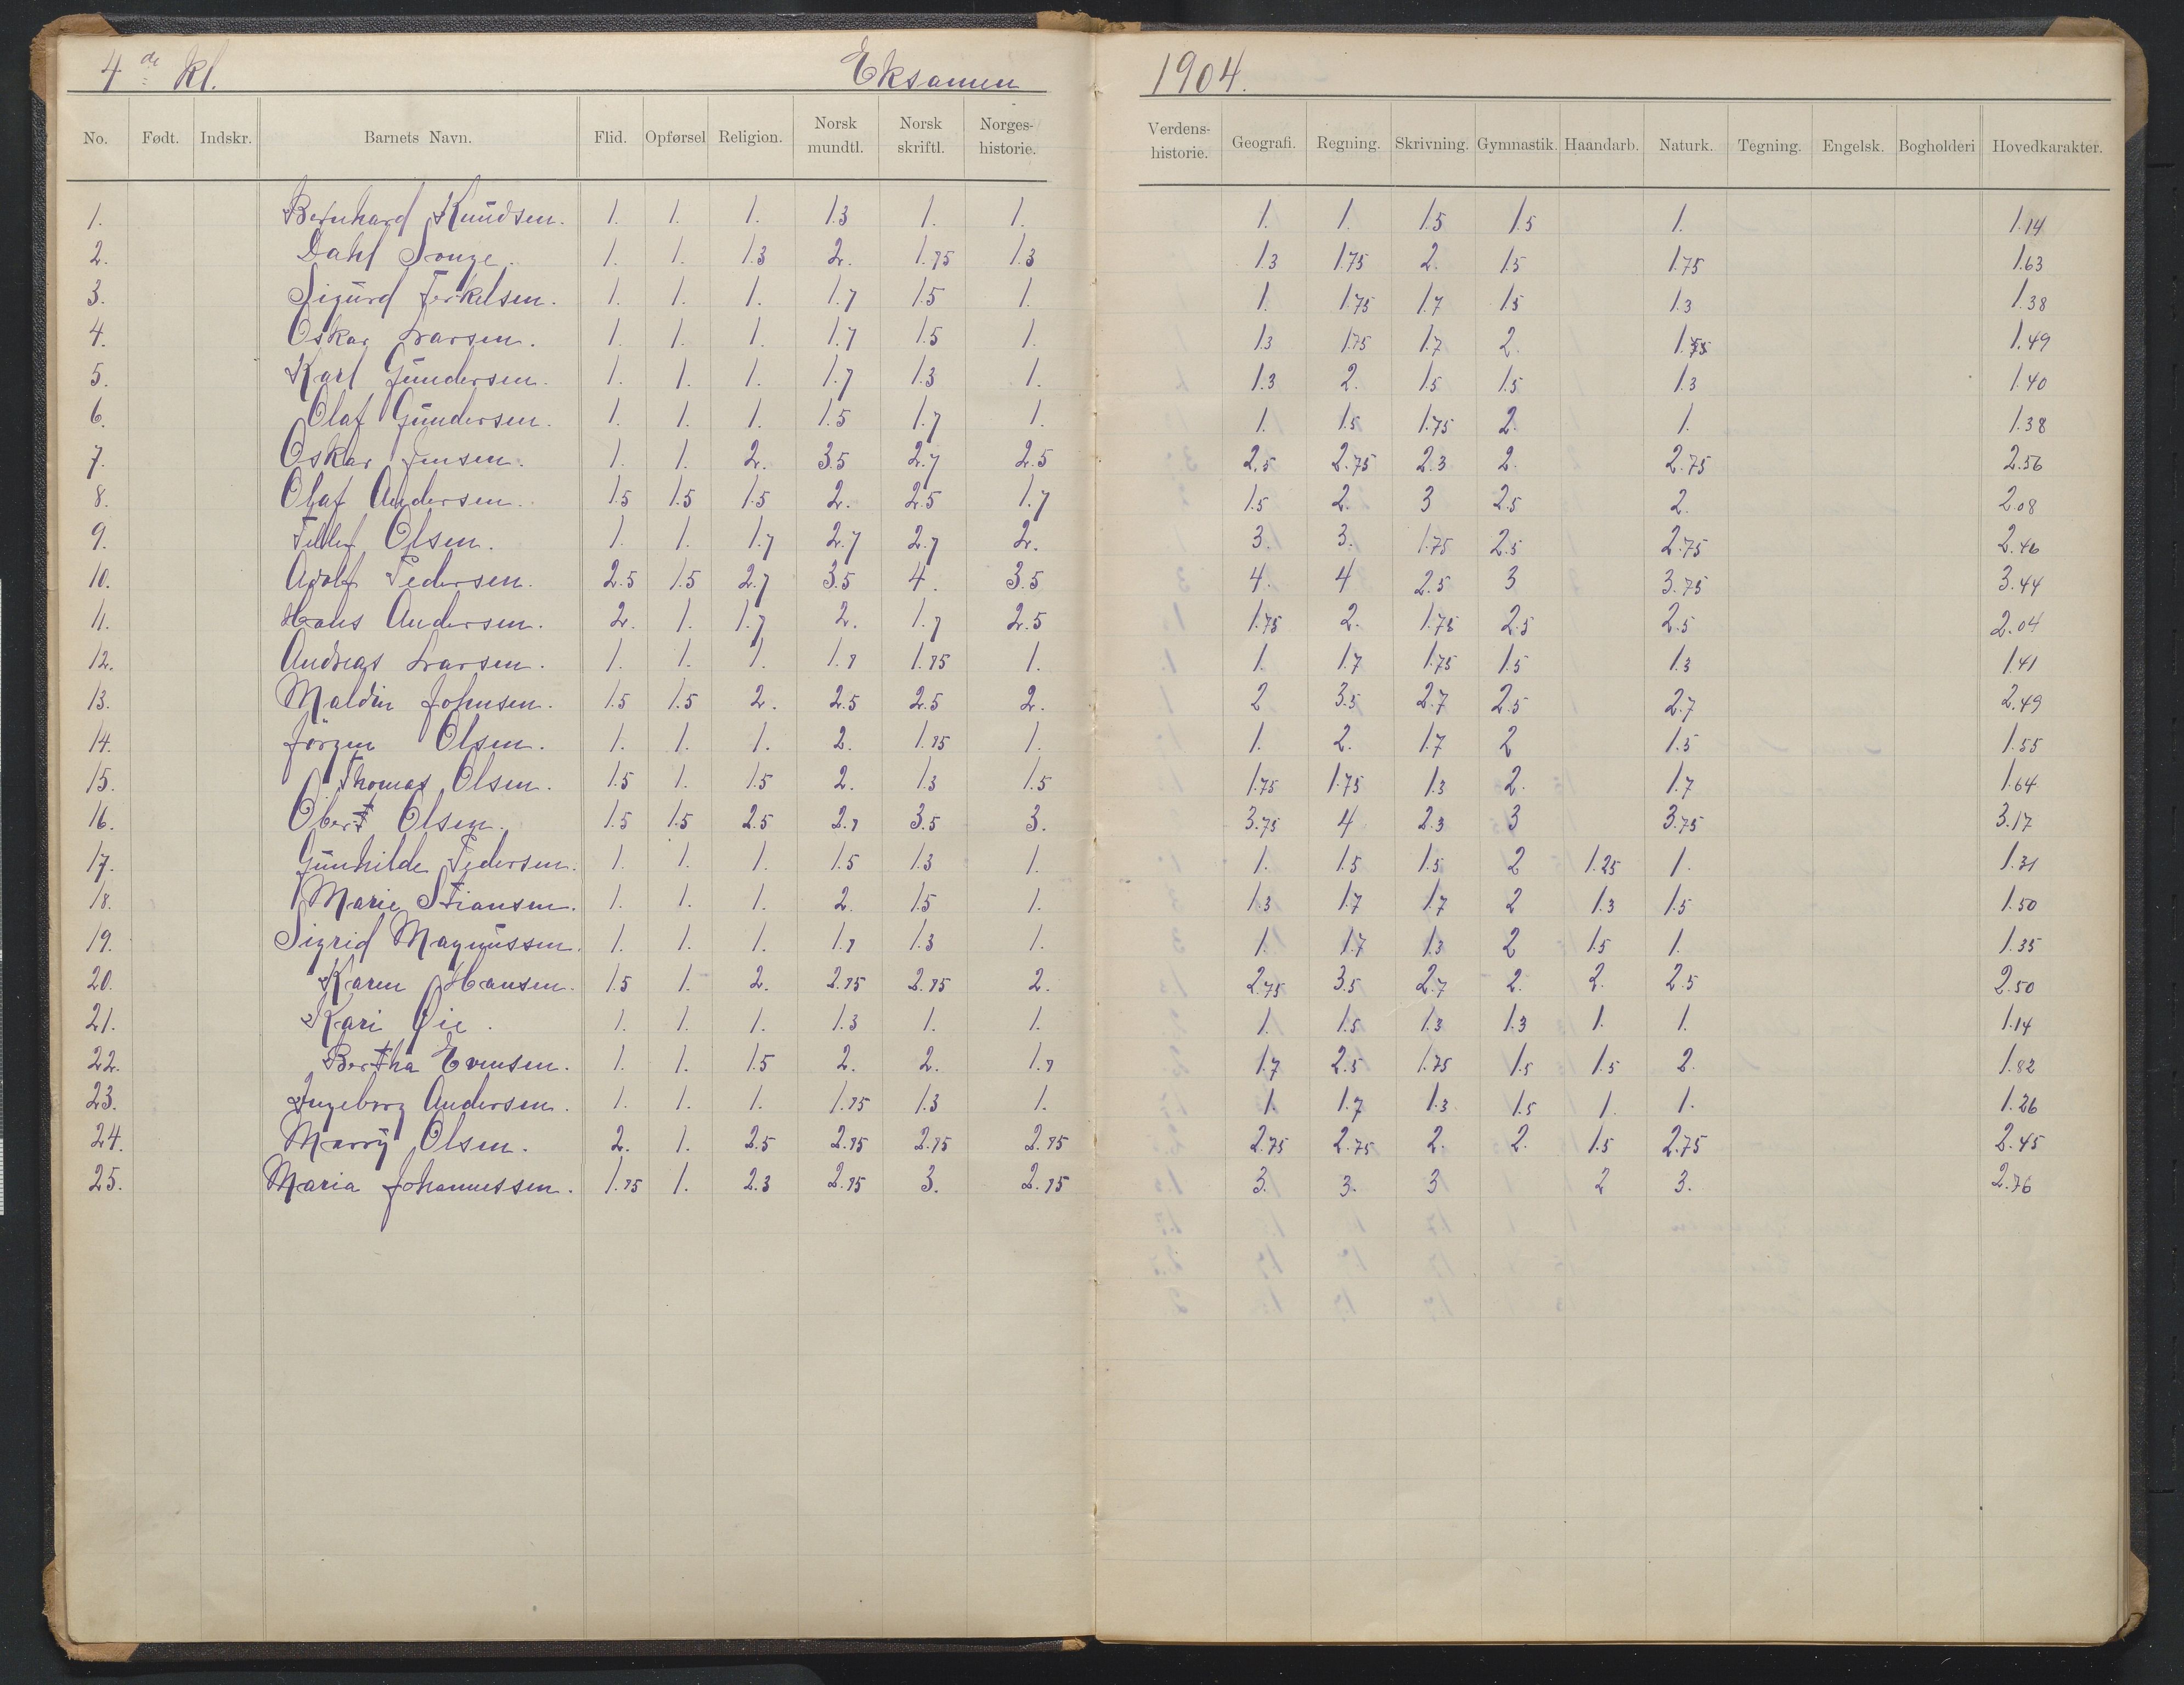 4de Kl. Eksamen 1904.
No. Født. Indskr. Barnets Navn. Flid. Opførsel Religion. Norsk mundtl. Norsk skriftl. Norges-historie. Verdens-historie. Geografi. Regning. Skrivning. Gymnastik. Haandarb. Naturk. Tegning. Engelsk. Bogholderi Hovedkarakter.
1. Bernhard Knudsen. 1. 1. 1. 1.3 1. 1. 1. 1. 1.5 1.5 1. 1.14
2. Dahl Songe. 1. 1. 1.3 2. 1.75 1.3 1.3 1.75 2. 1.5 1.75 1.63
3. Sigurd Terkelsen. 1. 1. 1. 1.7 1.5 1. 1. 1.75 1.7 1.5 1.3 1.38
4. Oskar Larsen. 1. 1. 1. 1.7 1.5 1. 1.3 1.75 1.7 2. 1.75 1.49
5. Karl Gundersen. 1. 1. 1. 1.7 1.3 1. 1.3 2. 1.5 1.5 1.3 1.40
6. Olaf Gundersen. 1. 1. 1. 1.5 1.7 1. 1. 1.5 1.75 2. 1. 1.38
7. Oskar Jensen. 1. 1. 2. 3.5 2.7 2.5 2.5 2.75 2.3 2. 2.75 2.56
8. Olaf Andersen. 1.5 1.5 1.5 2. 2.5 1.7 1.5 2. 3 2.5 2. 2.08
9. Tellef Olsen. 1. 1. 1.7 2.7 2.7 2. 3. 3. 1.75 2.5 2.75 2.46
10. Adolf Pedersen. 2.5 1.5 2.7 3.5 4. 3.5 4. 4 2.5 3 3.75 3.44
11. Hans Andersen. 2. 1. 1.7 2. 1.7 2.5 1.75 2. 1.75 2.5 2.5 2.04
12. Andreas Larsen. 1. 1. 1. 1.7 1.75 1. 1. 1.7 1.75 1.5 1.3 1.41
13. Maldin Johnsen. 1.5 1.5 2. 2.5 2.5 2. 2 3.5 2.7 2.5 2.7 2.49
14. Jörgen Olsen. 1. 1. 1. 2. 1.75 1. 1. 2. 1.7 2 1.5 1.55
15. Thomas Olsen. 1.5 1. 1.5 2. 1.3 1.5 1.75 1.75 1.3 2. 1.7 1.64
16. Obert Olsen. 1.5 1.5 2.5 2.7 3.5 3. 3.75 4 2.3 3 3.75 3.17
17. Gunhilde Pedersen. 1. 1. 1. 1.5 1.3 1. 1. 1.5 1.5 2 1.25 1. 1.31
18. Marie Stiansen. 1. 1. 1. 2. 1.5 1. 1.3 1.7 1.7 2 1.3 1.5 1.50
19. Sigrid Magnussen. 1. 1. 1. 1.7 1.3 1. 1. 1.7 1.3 2 1.5 1. 1.35
20. Karen Hansen. 1.5 1. 2. 2.75 2.75 2. 2.75 3.5 2.7 2. 2. 2.5 2.50
21. Kari Øie. 1. 1. 1. 1.3 1. 1. 1. 1.5 1.3 1.3 1. 1. 1.14
22. Bertha Evensen. 1. 1. 1.5 2. 2. 1.7 1.7 2.5 1.75 1.5 1.5 2. 1.82
23. Ingeborg Andersen. 1. 1. 1. 1.75 1.3 1. 1 1.7 1.3 1.5 1. 1. 1.26
24. Marry Olsen. 2. 1. 2.5 2.75 2.75 2.75 2.75 2.75 2. 2. 1.5 2.75 2.45
25. Maria Johannessen. 1.75 1. 2.3 2.75 3. 2.75 3. 3. 3 2 3. 2.76